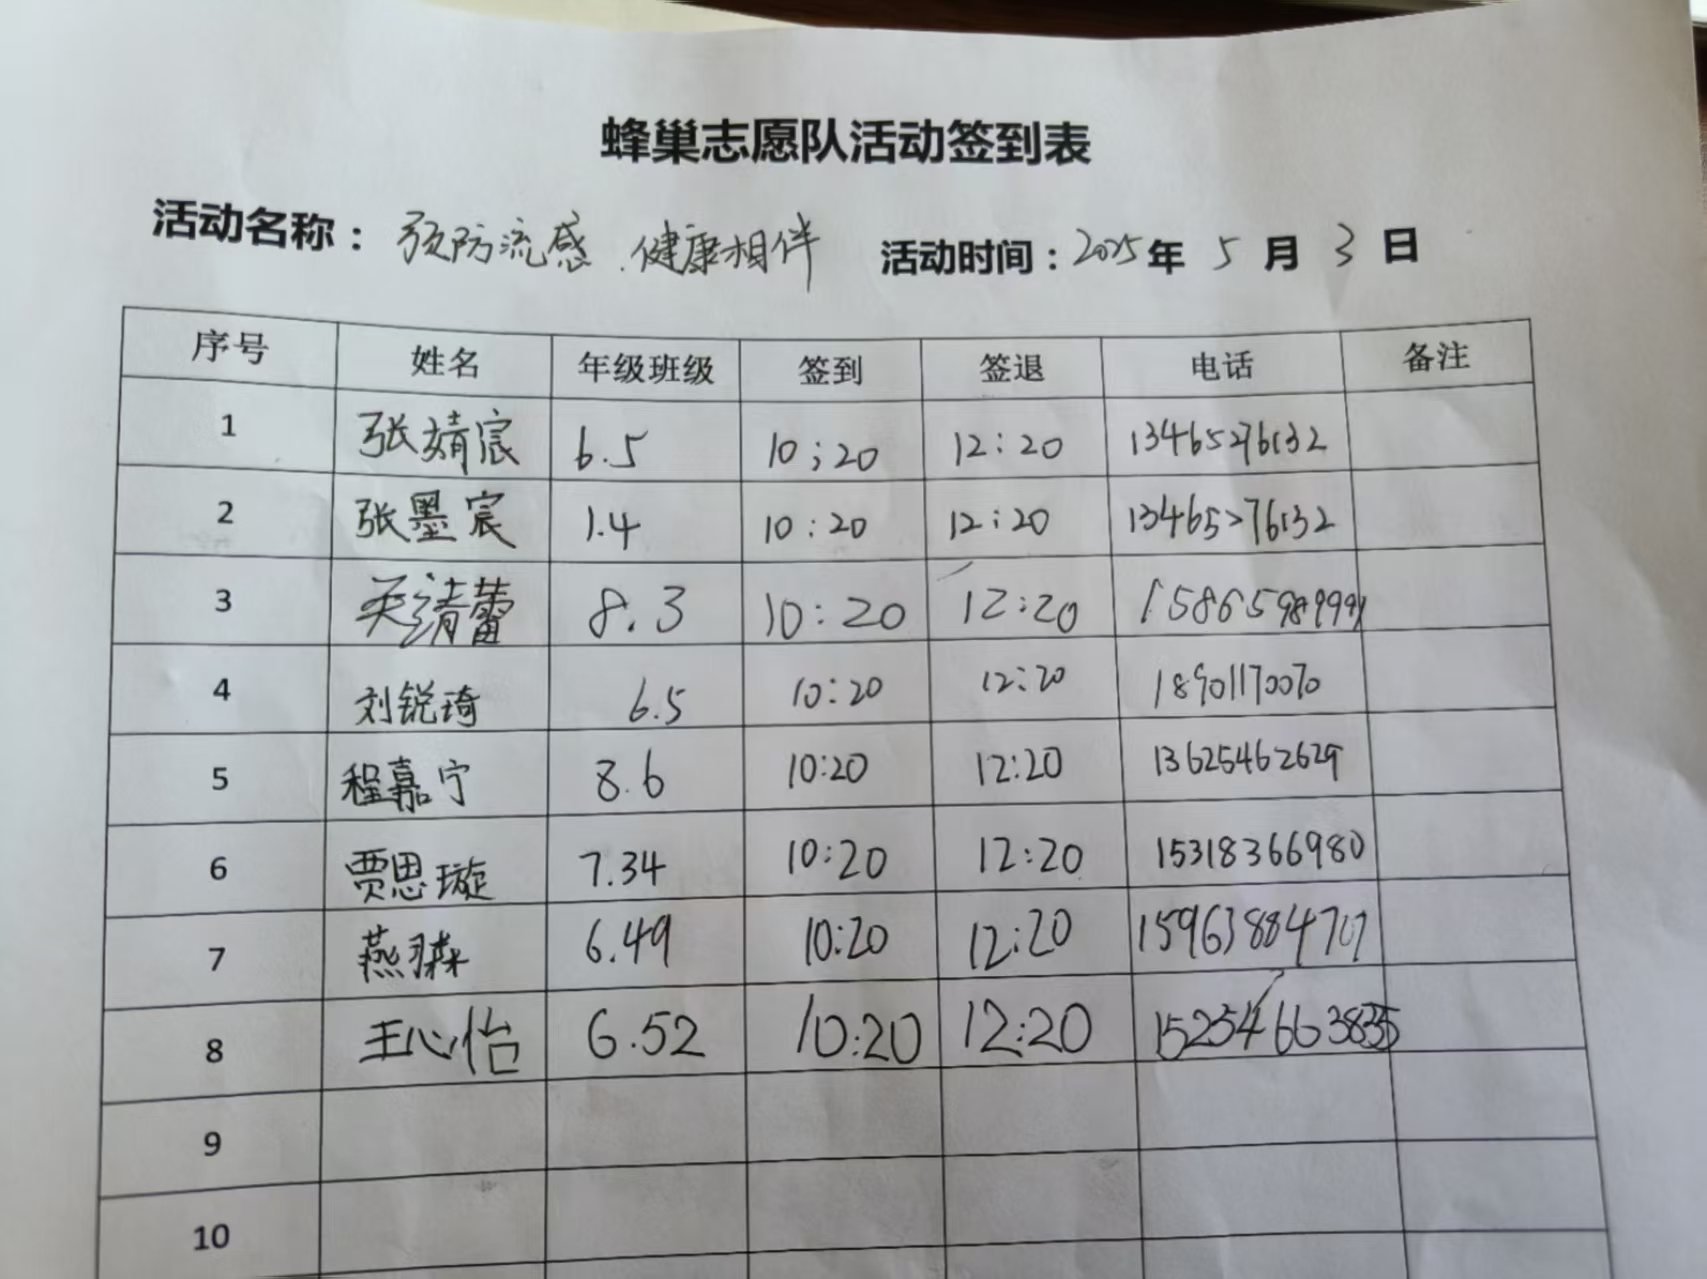 蜂巢志愿队活动签到表
活动名称：预防流感.健康相伴 活动时间：2025年5月3日
序号 姓名 年级班级 签到 签退 电话 备注
1 张婧宸 6.5 10:20 12:20 13465276132
2 张墨宸 1.4 10:20 12:20 13465276132
3 8.3 10:20 12:20
4 刘锐琦 6.5 10:20 12:20 18901170070
5 程嘉宁 8.6 10:20 12:20 13625462629
6 贾思璇 7.34 10:20 12:20 15318366980
7 6.49 10:20 12:20 15963884707
8 王心怡 6.52 10:20 12:20
9
10